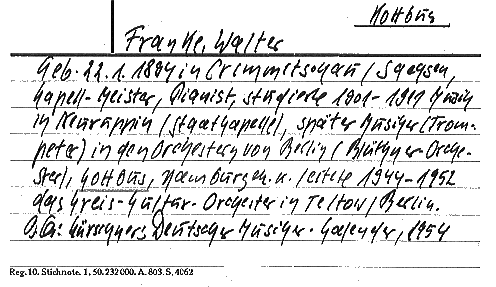 Kottbus
Franke, Walter
Geb. 22.1.1884 in Crimmitschau / Sachsen,
Kapell-Meister, Pianist, studierte 1901-1911 Musik
in Neuruppin (Stadtkapelle), später Musiker (Trom-
peter) in den Orchestern von Berlin (Blüthner-Orche-
ster), Kottbus, Hamburg u. leitete 1944-1952
das Kreis-Kultur-Orchester in Teltow / Berlin.
Kürschners Deutscher Musiker-Kalender, 1954
Reg. 10. Stichnote. 1, 50. 232 000. A. 803. S. 4062